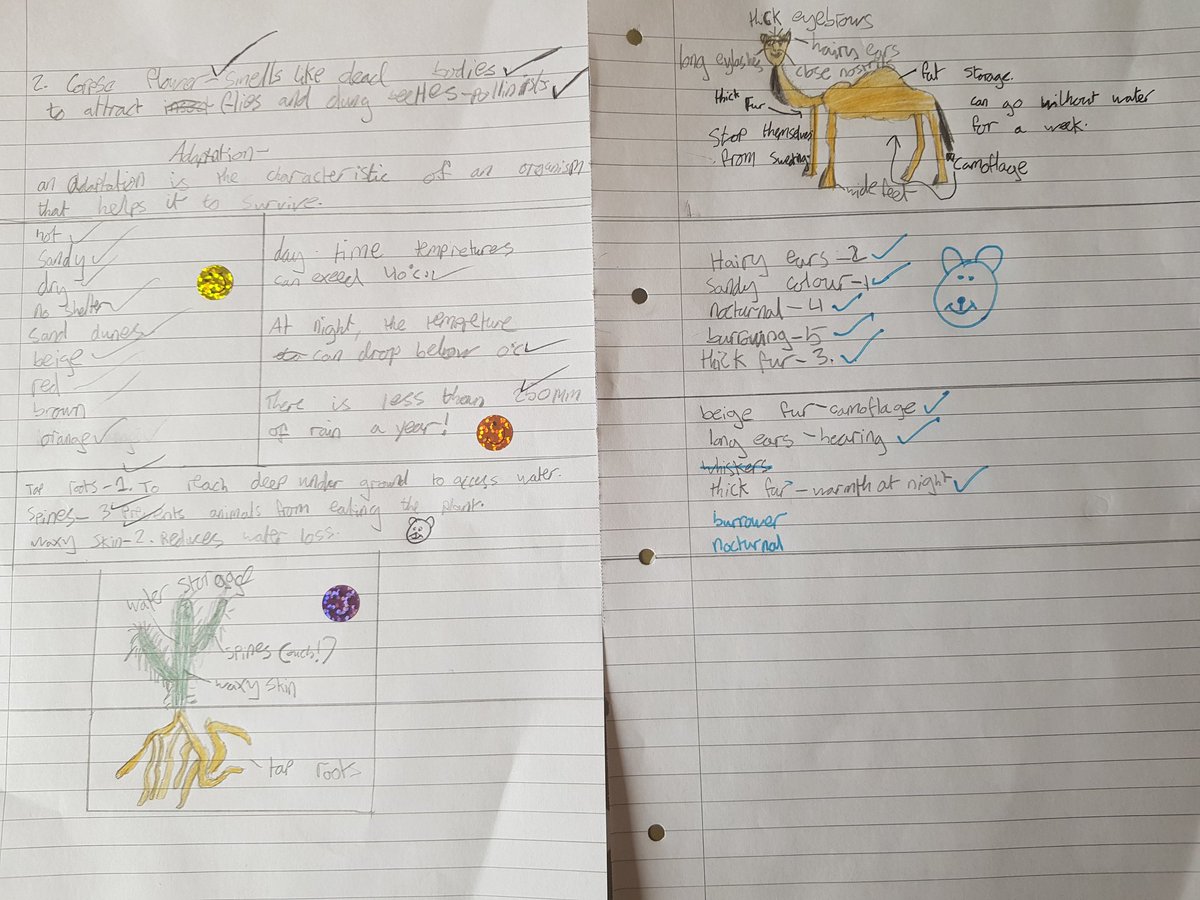 2. Corpse flower - smells like dead bodies
to attract flies and dung beetles - pollinists
Adaptation-
an adaptation is the characteristic of an organism
that helps it to survive.
hot
Sandy
dry
no shelter
sand dunes
beige
red
brown
orange
day time tempretures
can exeed 40°c
At night, the tempreture
can drop below 0°c
There is less than 250mm
of rain a year!
Tap roots-1. To reach deep under ground to access water.
Spines- 3 Prevents animals from eating the plant.
waxy skin-2. Reduces water loss.
water storage
spines (ouch!)
waxy skin
tap roots
thick eyebrows
long eyelashes
hairy ears
close nostrils
fat storage.
can go without water
for a week.
thick fur
Stop themselves
from sweating
camoflage
wide feet
Hairy ears-2
Sandy colour-1
nocturnal-4
burrowing-5
thick fur-3.
beige fur-camoflage
long ears-hearing
whiskers
thick fur-warmth at night
burrower
nocturnal